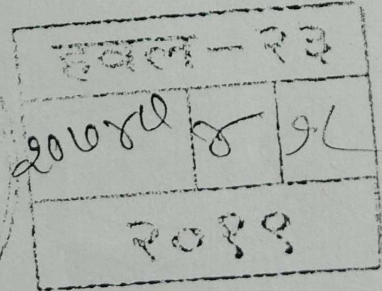 हवल - २३
२०७४७ ४ १८
२०१९